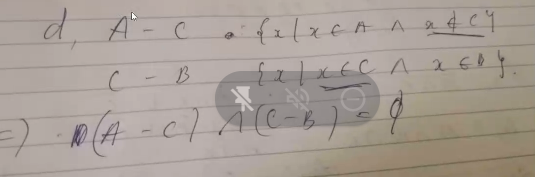 d, A - C = {x | x ∈ A ∧ x ∉ C}
C - B {x | x ∈ C ∧ x ∈ B}.
=) (A - C) ∧ (C - B) = ϕ